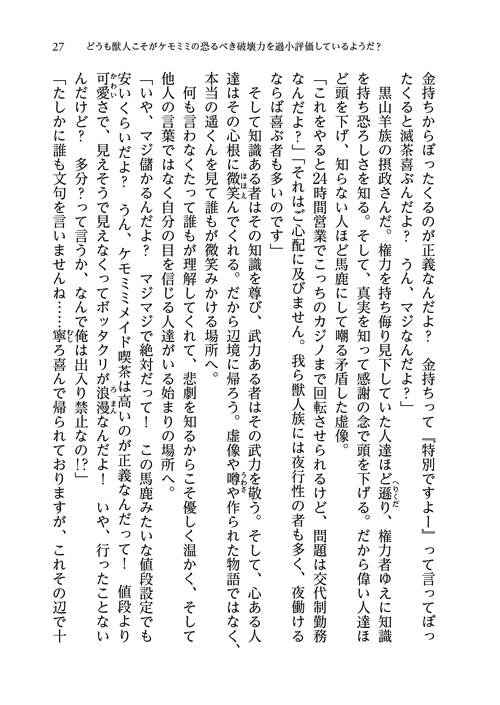 27　どうも獣人こそがケモミミの恐るべき破壊力を過小評価しているようだ？
金持ちからぼったくるのが正義なんだよ？　金持ちって『特別ですよー』って言ってぼっ
たくると滅茶喜ぶんだよ？　うん、マジなんだよ？」
　黒山羊族の摂政さんだ。権力を持ち侮り見下していた人達ほど遜り、権力者ゆえに知識
を持ち恐ろしさを知る。そして、真実を知って感謝の念で頭を下げる。だから偉い人達ほ
ど頭を下げ、知らない人ほど馬鹿にして嘲る矛盾した虚像。
「これをやると24時間営業でこっちのカジノまで回転させられるけど、問題は交代制勤務
なんだよ？」「それはご心配に及びません。我ら獣人族には夜行性の者も多く、夜働ける
ならば喜ぶ者も多いのです」
　そして知識ある者はその知識を尊び、武力ある者はその武力を敬う。そして、心ある人
達はその心根に微笑んでくれる。だから辺境に帰ろう。虚像や噂や作られた物語ではなく、
本当の遥くんを見て誰もが微笑みかける場所へ。
　何も言わなくたって誰もが理解してくれて、悲劇を知るからこそ優しく温かく、そして
他人の言葉ではなく自分の目を信じる人達がいる始まりの場所へ。
「いや、マジ儲かるんだよ？　マジマジで絶対だって！　この馬鹿みたいな値段設定でも
安いくらいだよ？　うん、ケモミミメイド喫茶は高いのが正義なんだって！　値段より
可愛さで、見えそうで見えなくってボッタクリが浪漫なんだよ！　いや、行ったことない
んだけど？　多分？って言うか、なんで俺は出入り禁止なの!?」
「たしかに誰も文句を言いませんね……寧ろ喜んで帰られておりますが、これその辺で十